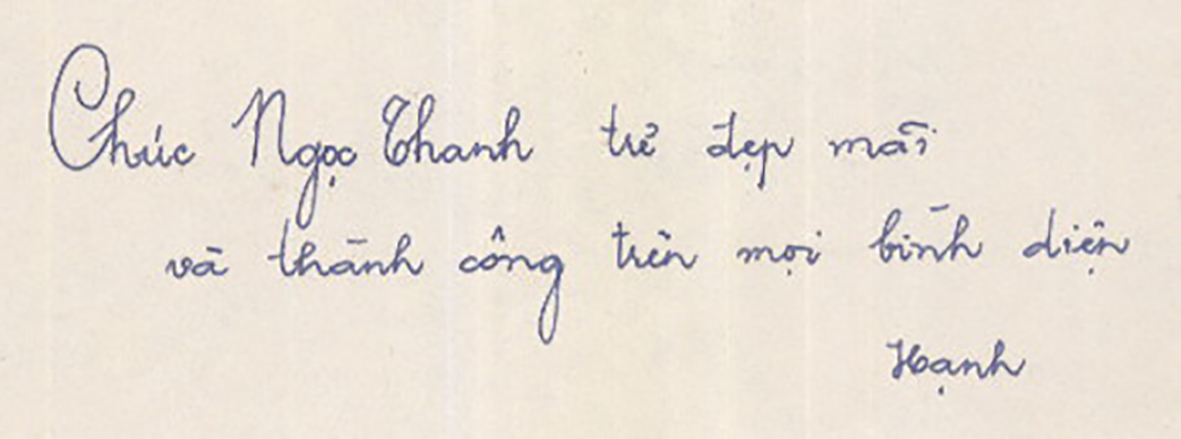 Chúc Ngọc Thanh trẻ đẹp mãi
và thành công trên mọi bình diện
Hạnh